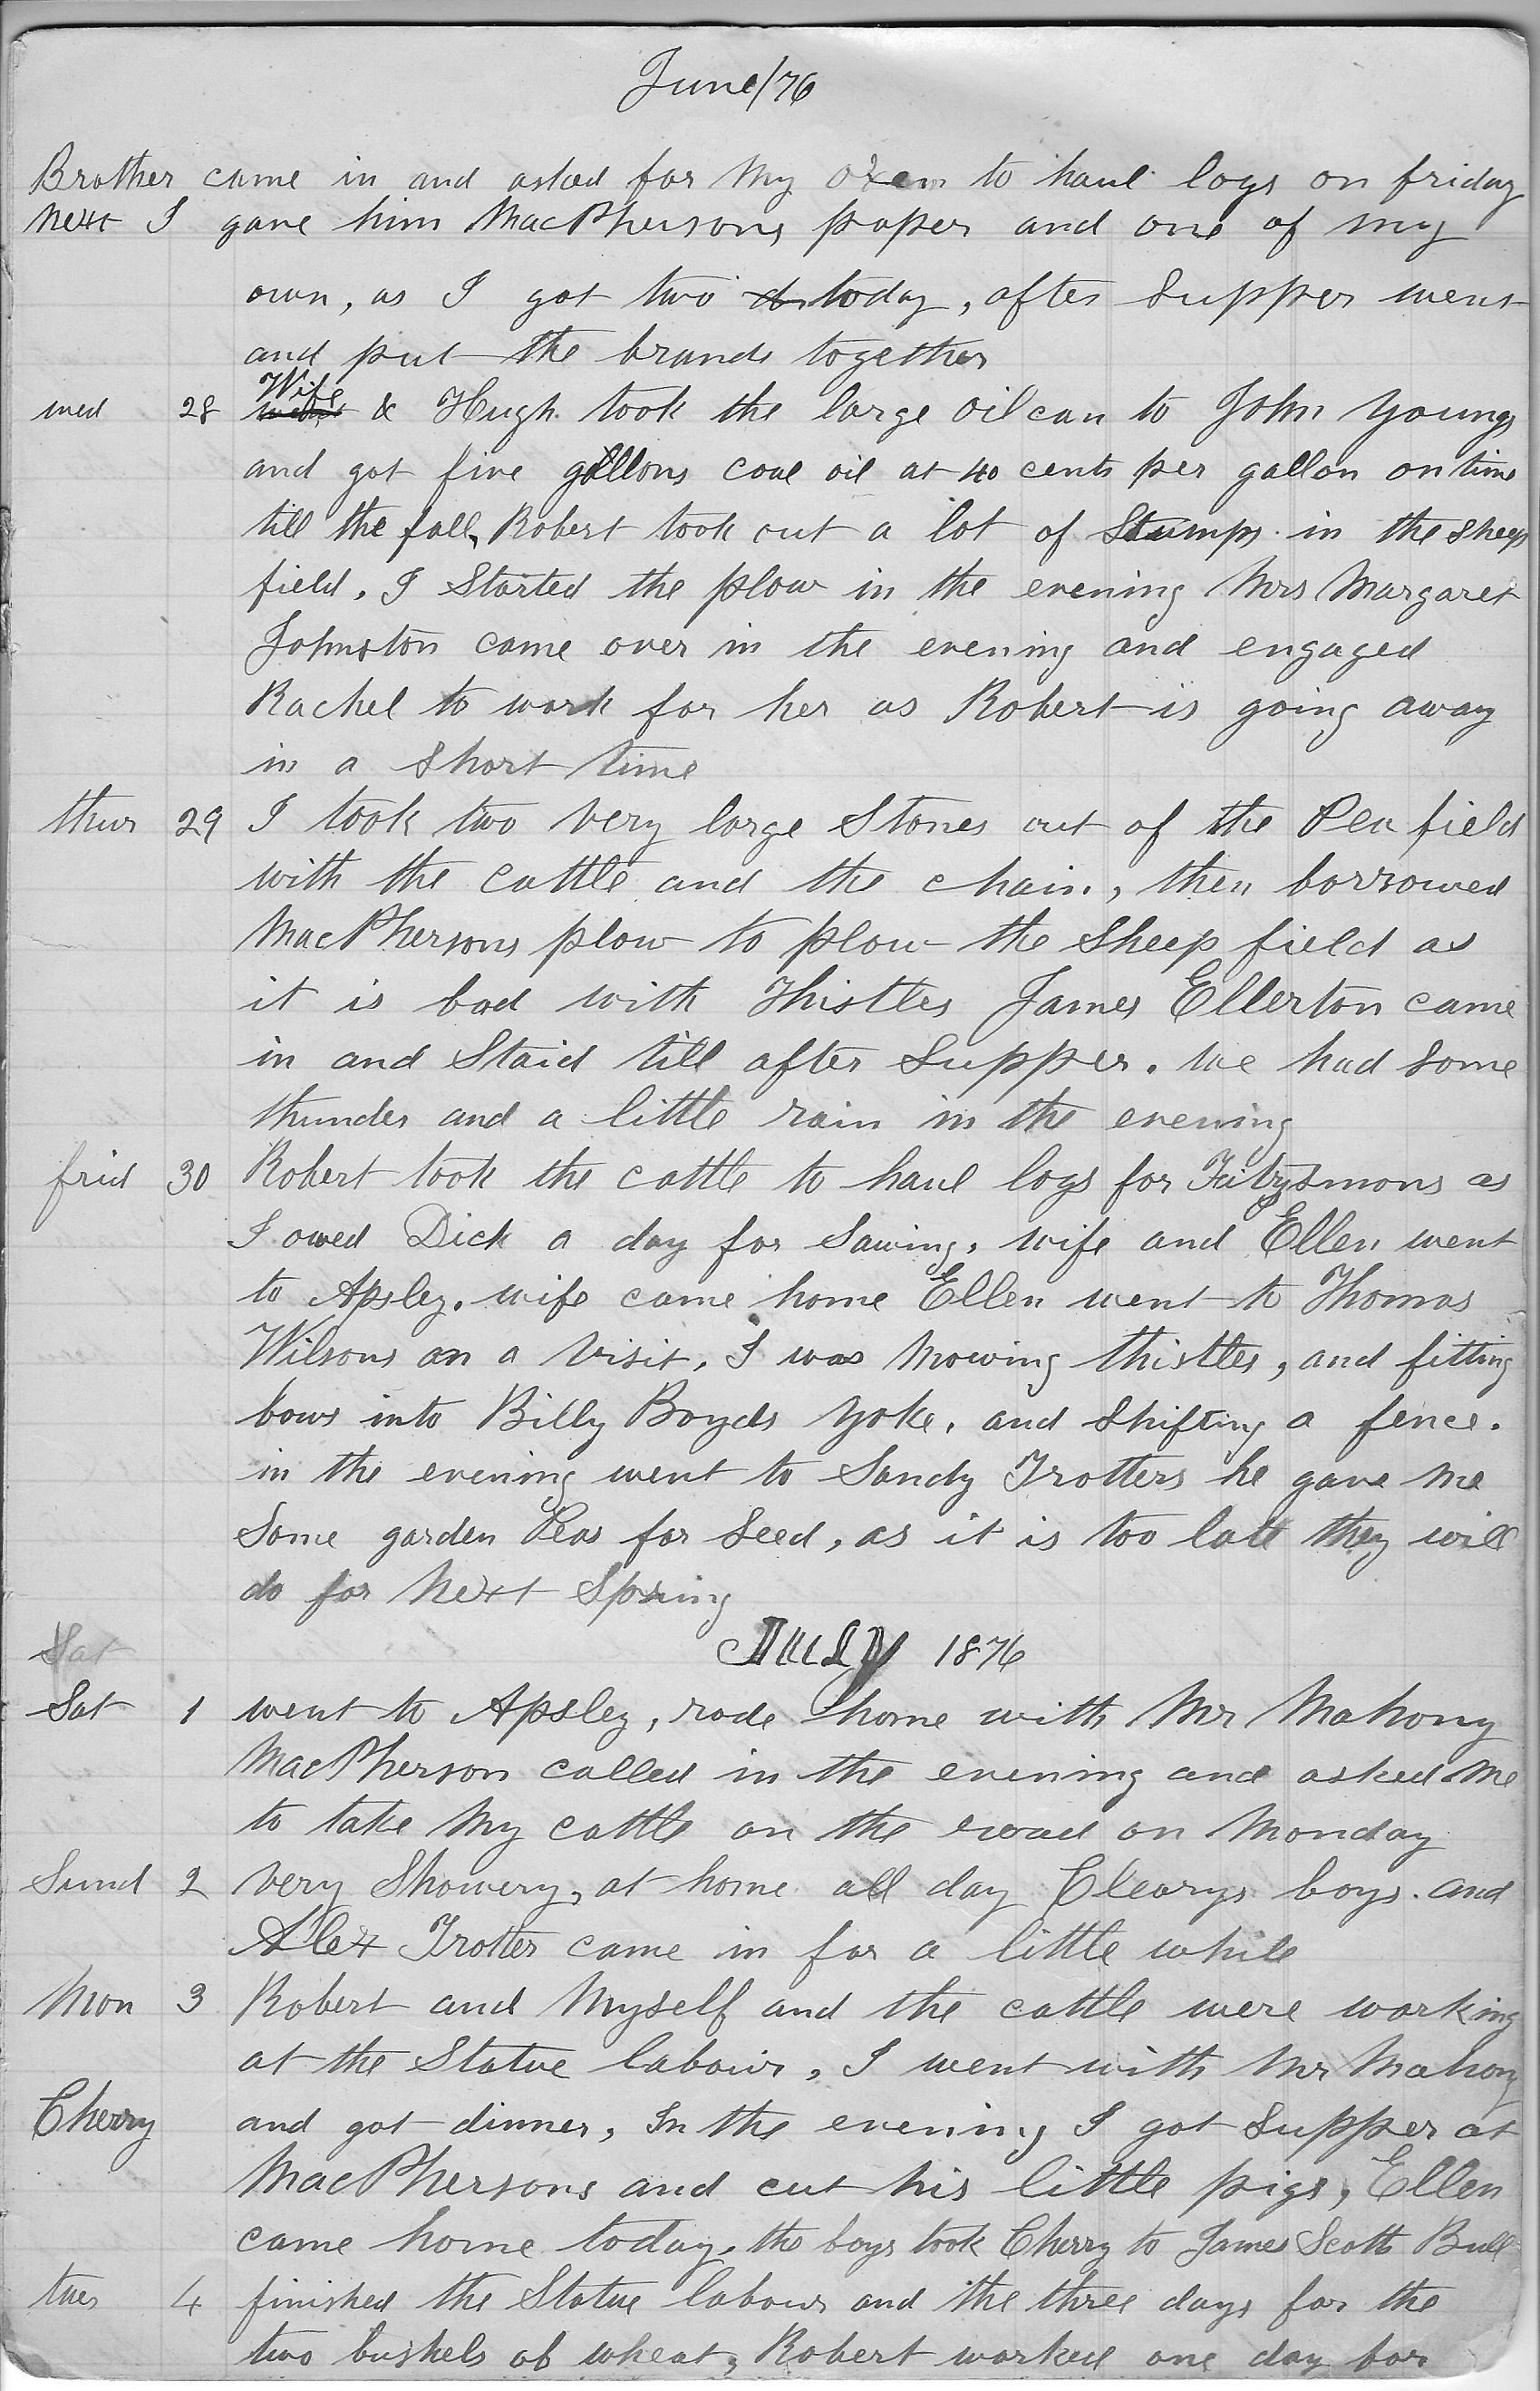 June/76
Brother came in and asked for My oxen to haul logs on friday
Next I gave him MacPhersons paper and one of my
own, as I got two today, after Supper went
and put the brands together
wed 28 Wife & Hugh took the large oil can to John Youngs
and got five gallons coal oil at 40 cents per gallon on time
till the fall, Robert took out a lot of Stumps in the Sheep
field. I Started the plow in the evening Mrs Margaret
Johnston came over in the evening and engaged
Rachel to work for her as Robert is going away
in a Short time
thur 29 I took two very large Stones out of the Pea field
with the cattle and the chain, then borrowed
MacPhersons plow to plow the Sheep field as
it is bad with Thistles James Ellerton came
in and Staid till after Supper. We had Some
thunder and a little rain in the evening
frid 30 Robert took the cattle to haul logs for Fitzysmons as
I owed Dick a day for Sawing. wife and Ellen went
to Apsley. wife came home Ellen went to Thomas
Wilsons on a Visit. I was Mowing thistles, and fitting
bows into Billy Boyds Yoke. and Shifting a fence.
in the evening went to Sandy Trotters he gave Me
Some garden Peas for Seed, as it is too late they will
do for Next Spring
Sat JULY 1876
Sat 1 went to Apsley, rode home with Mr Mahony
MacPherson called in the evening and asked Me
to take My cattle on the road on Monday
Sund 2 Very Showery, at home all day Clearys boys. and
Alex Trotter came in for a little while
Mon 3 Robert and Myself and the cattle were working
at the Statue labour, I went with Mr Mahony
Cherry and got dinner, In the evening I got Supper at
MacPhersons and cut his little pigs, Ellen
came home today. the boys took Cherry to James Scotts Bull
tues 4 finished the Statue labour and the three days for the
two bushels of wheat, Robert worked one day for